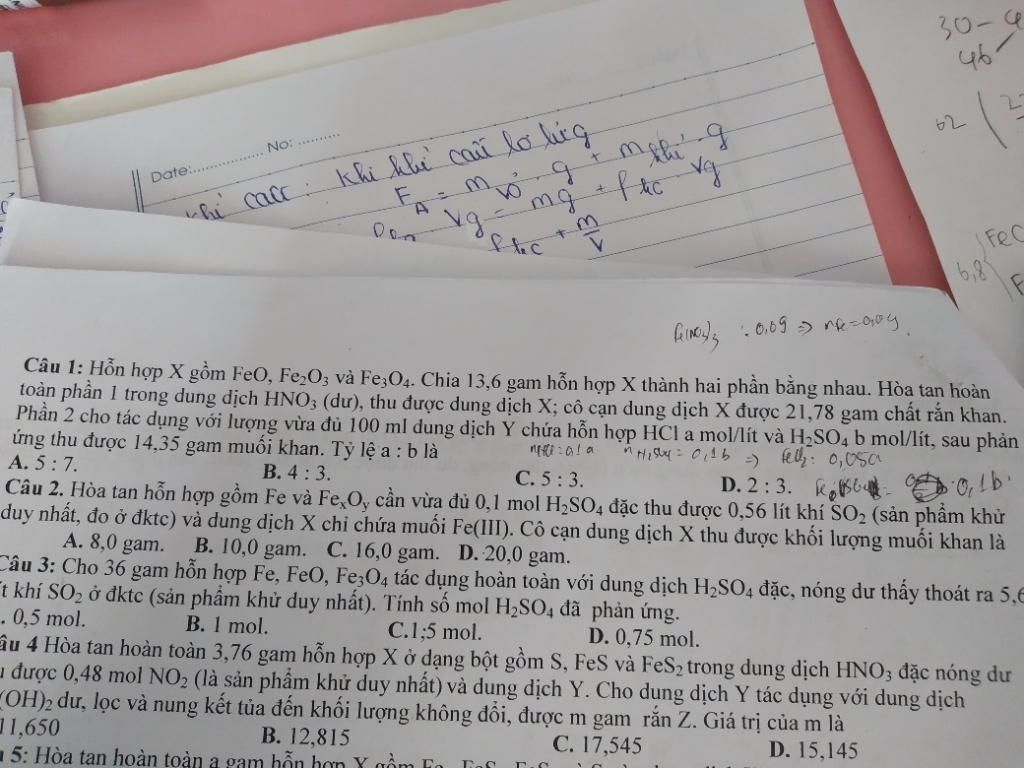 30 -
46
62
Date:................ No: ..........
khí cacc : Khi khí cầu lơ lửng
F_A = m vỏ . g + m khí . g
Vg = mg + ρ kc Vg
ρ kc + m/V
FeO
6,8
Fe(NO3)3 : 0,09 => nFe = 0,09.
Câu 1: Hỗn hợp X gồm FeO, Fe2O3 và Fe3O4. Chia 13,6 gam hỗn hợp X thành hai phần bằng nhau. Hòa tan hoàn
toàn phần 1 trong dung dịch HNO3 (dư), thu được dung dịch X; cô cạn dung dịch X được 21,78 gam chất rắn khan.
Phần 2 cho tác dụng với lượng vừa đủ 100 ml dung dịch Y chứa hỗn hợp HCl a mol/lít và H2SO4 b mol/lít, sau phản
ứng thu được 14,35 gam muối khan. Tỷ lệ a : b là
nHCl = 0,1a nH2SO4 = 0,1b => FeCl2 : 0,05a
A. 5 : 7. B. 4 : 3. C. 5 : 3. D. 2 : 3.
0,1b
Câu 2. Hòa tan hỗn hợp gồm Fe và FexOy cần vừa đủ 0,1 mol H2SO4 đặc thu được 0,56 lít khí SO2 (sản phẩm khử
duy nhất, đo ở đktc) và dung dịch X chỉ chứa muối Fe(III). Cô cạn dung dịch X thu được khối lượng muối khan là
A. 8,0 gam. B. 10,0 gam. C. 16,0 gam. D. 20,0 gam.
Câu 3: Cho 36 gam hỗn hợp Fe, FeO, Fe3O4 tác dụng hoàn toàn với dung dịch H2SO4 đặc, nóng dư thấy thoát ra 5,6
ít khí SO2 ở đktc (sản phẩm khử duy nhất). Tính số mol H2SO4 đã phản ứng.
. 0,5 mol. B. 1 mol. C.1;5 mol. D. 0,75 mol.
âu 4 Hòa tan hoàn toàn 3,76 gam hỗn hợp X ở dạng bột gồm S, FeS và FeS2 trong dung dịch HNO3 đặc nóng dư
u được 0,48 mol NO2 (là sản phẩm khử duy nhất) và dung dịch Y. Cho dung dịch Y tác dụng với dung dịch
(OH)2 dư, lọc và nung kết tủa đến khối lượng không đổi, được m gam rắn Z. Giá trị của m là
11,650 B. 12,815 C. 17,545 D. 15,145
5: Hòa tan hoàn toàn a gam hỗn hợp X gồm